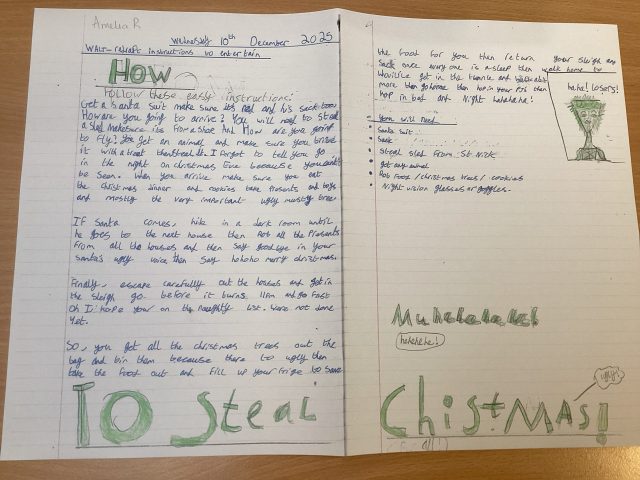 Amelia R
Wednesday 10th December 2025
WALT - redraft instructions to entertain
How
FOLLOW these easy instructions!
Get a Santa suit make sure its red and his sack too.
How are you going to arrive? You will need to steal
a sled make sure its from a shoe And How are you going
to fly? You get an animal and make sure you bribe
it with a treat then Steal it. I forgot to tell you go
in the night on Christmas Eve because you
be seen. When you arrive make sure you eat
the Christmas dinner and cookies take Presents and toys
and mostly the very important ugly musty tree.
If Santa comes, hide in a dark room until
he goes to the next house then Rob all the Presents
from all the houses and then say goodbye in your
santa's ugly voice then say hohoho merry christmas.
Finally, escape carefully out the houses and get in
the sleigh go before it burns 11pm and go fast
Oh I hope your on the naughty list. Were not done
yet.
So, you get all the christmas trees out the
bag and bin them because there to ugly then
take the food out and fill up your fridge to save
the food for you then return your sleigh and
sack once everyone is a sleep then walk home to
get in the
more then go home then hop in your PJs then
hop in bed and Night hahahaha!
haha! losers!
you will need
Santa suit
Sack
Steal sled from St. Nick
get any animal
Rob Food / christmas trees / cookies
Night vision glasses or goggles.
Muhahahaha!
hahahaha!
ugly!
To Steal
ChistMAS!
all!